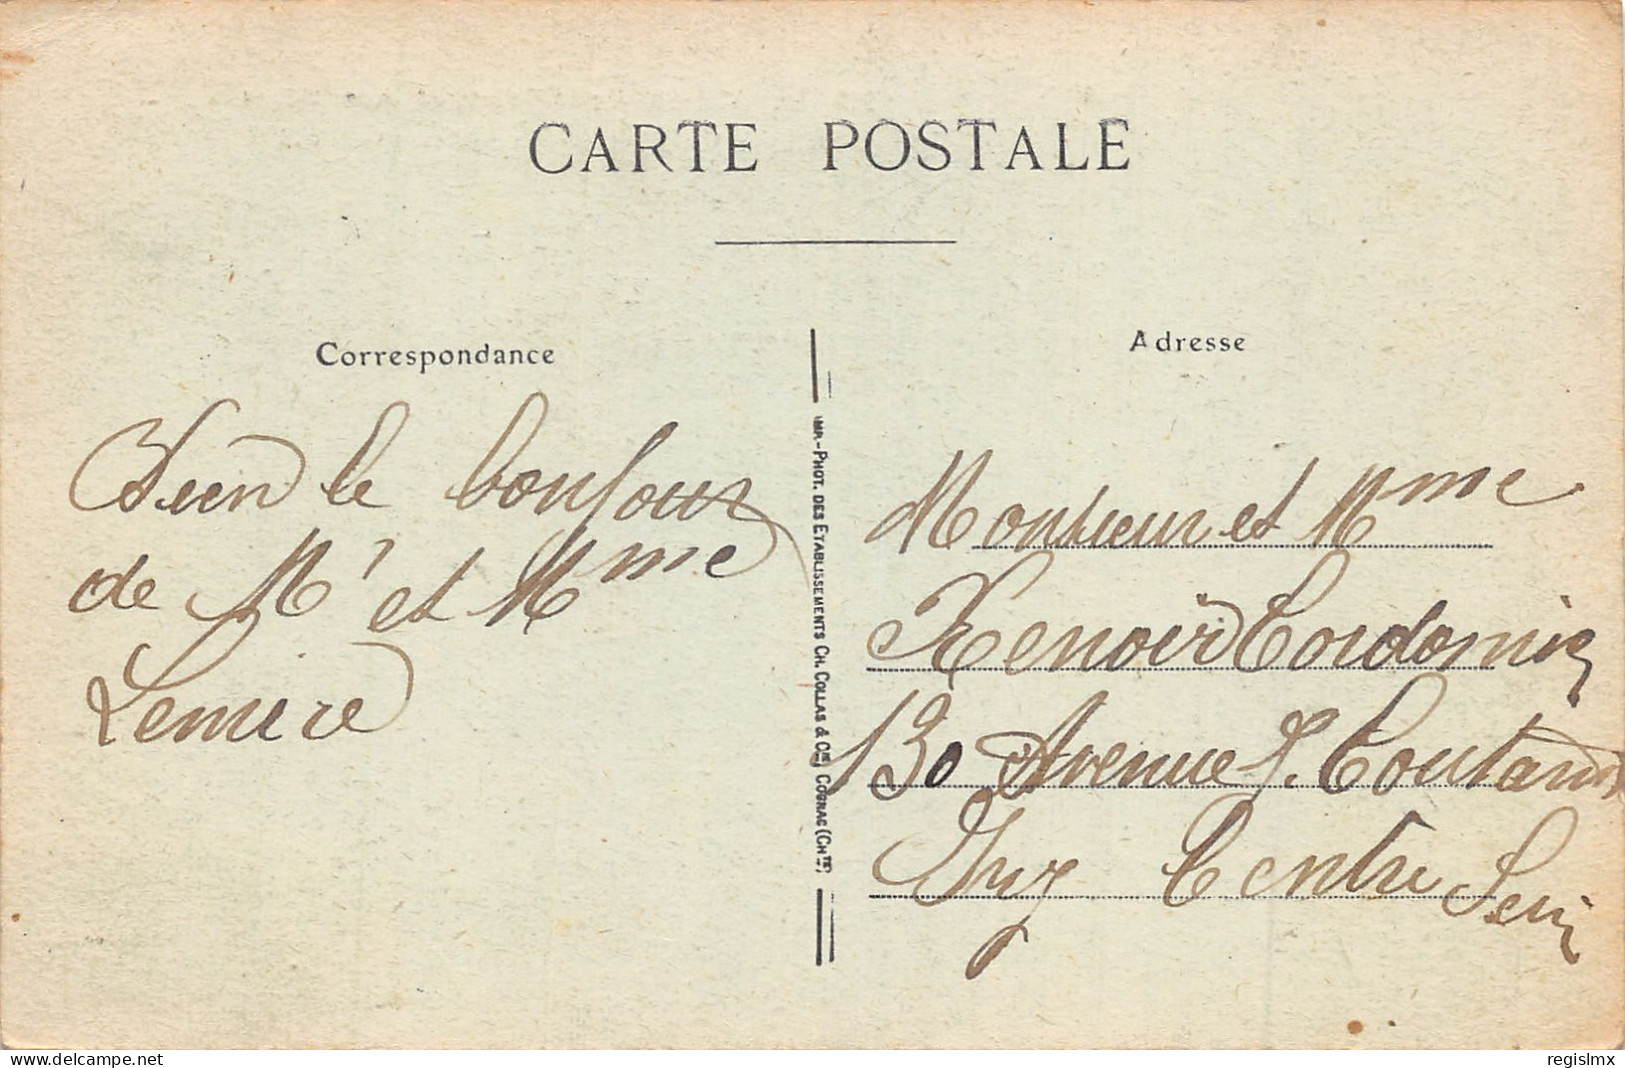 CARTE POSTALE
Correspondance
Bien le bonjour
de Mr et Mme
Lemire
IMP.-PHOT. DES ETABLISSEMENTS CH. COLLAS & Cie, COGNAC (CHte)
Adresse
Monsieur et Mme
Renoir
130 Avenue J. Coutant
Ivry Centre Seine
www.delcampe.net
regislmx